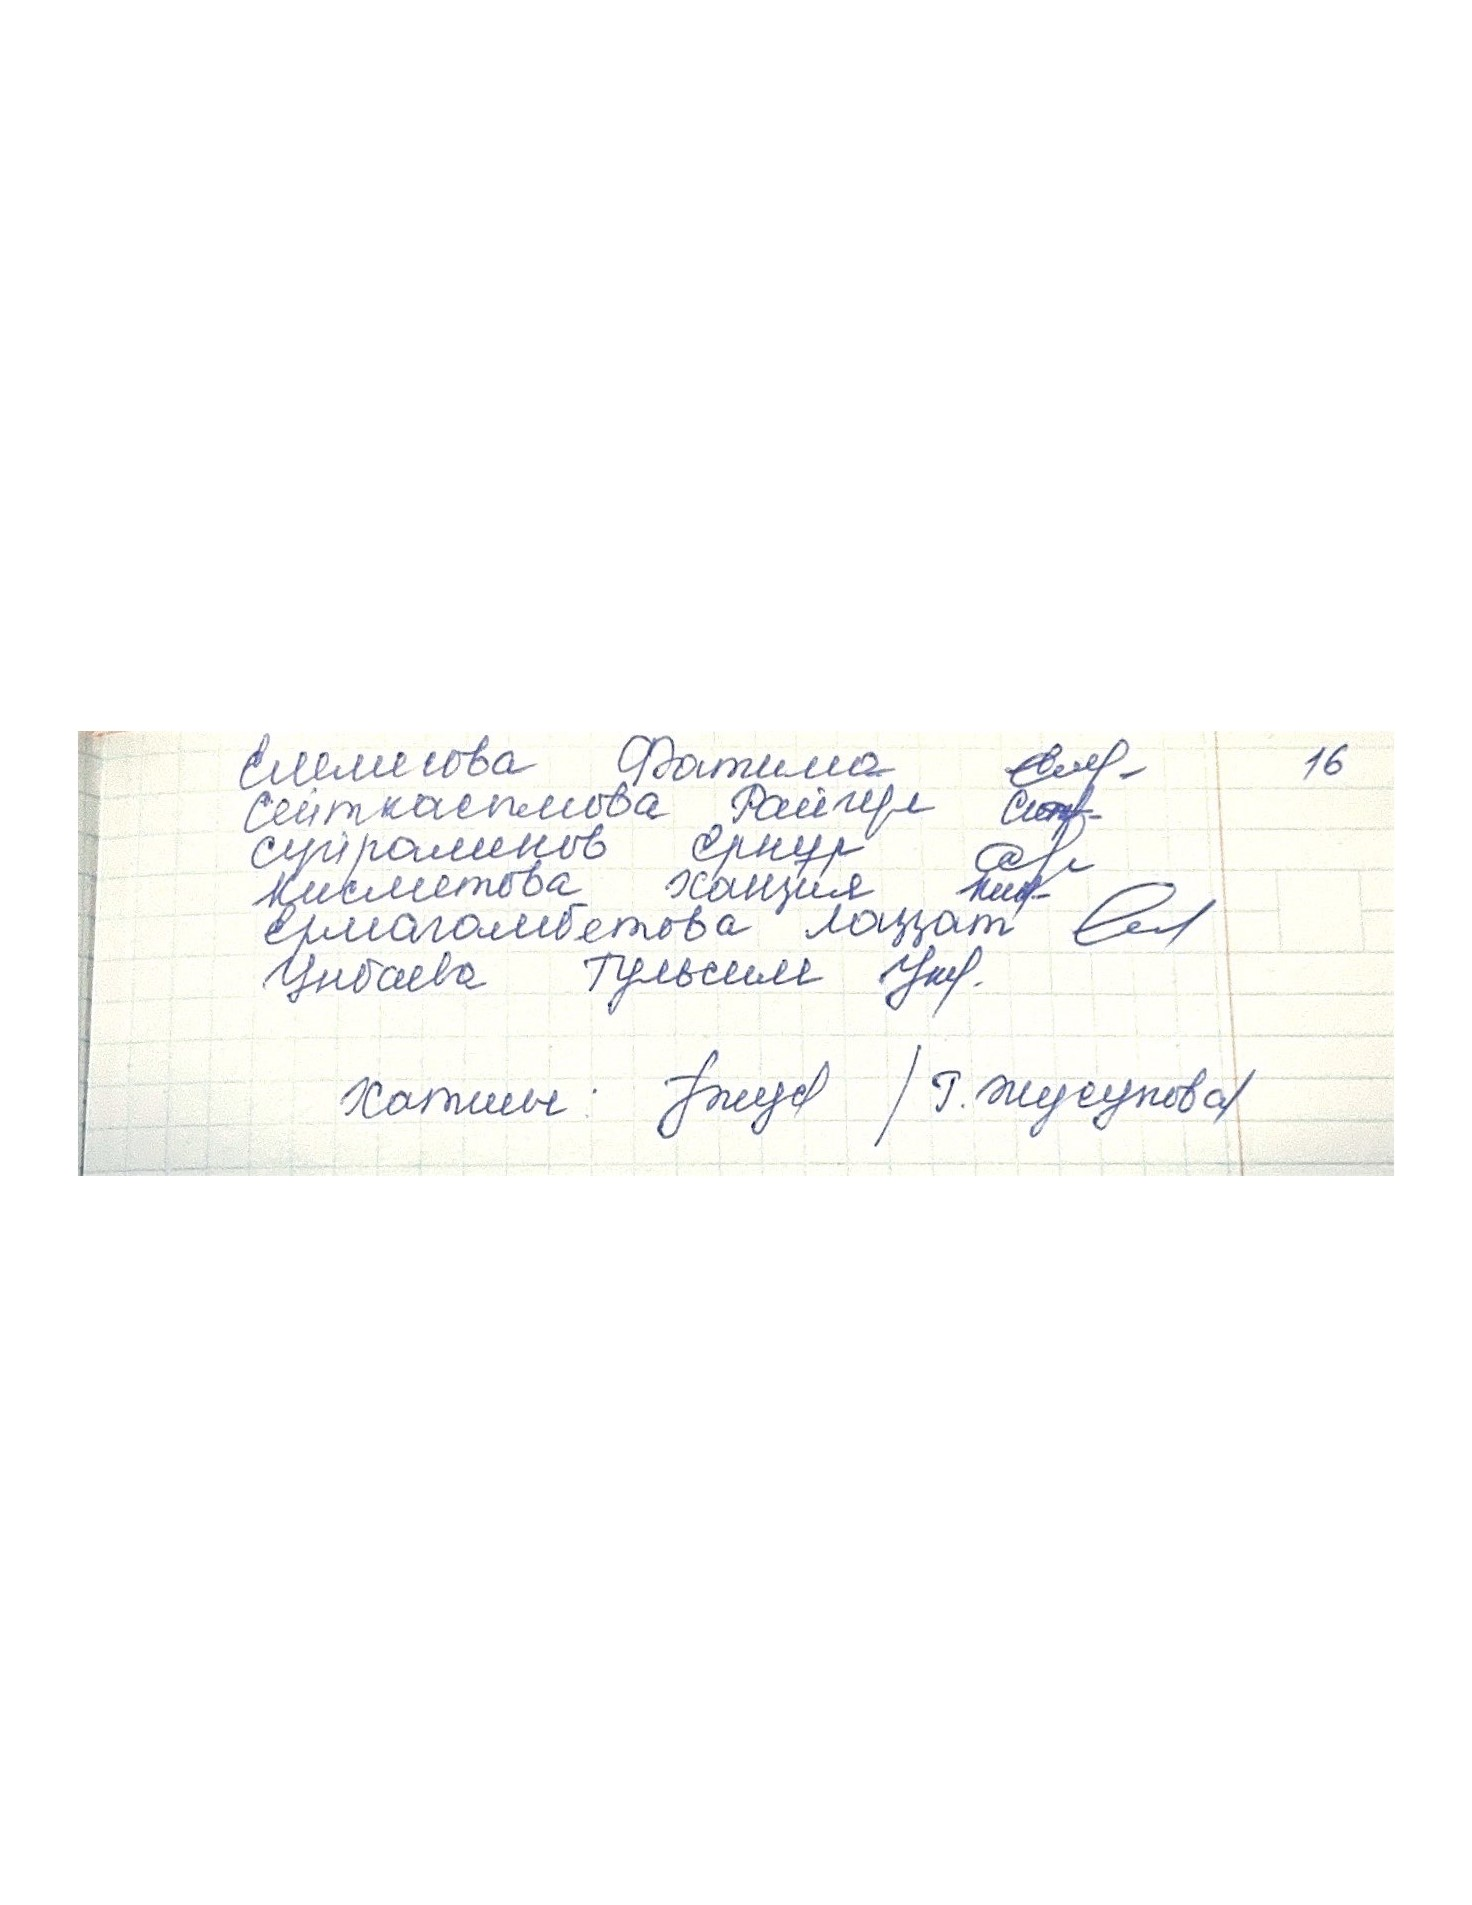 Елемесова Фатима 16
Сейткасымова Райгүл
Сүйраминов Ернұр
Кисметова Ханзия
Ермагамбетова Лаззат
Унбаева Гульсим
Хатшы: / Г. Жусупова/